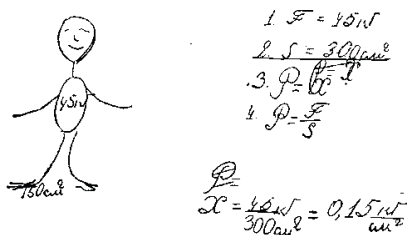 45кг
150см²
1. F = 45кг
2. S = 300см²
3. P = X
4. P = F/S
P =
X = 45кг/300см² = 0,15 кг/см²